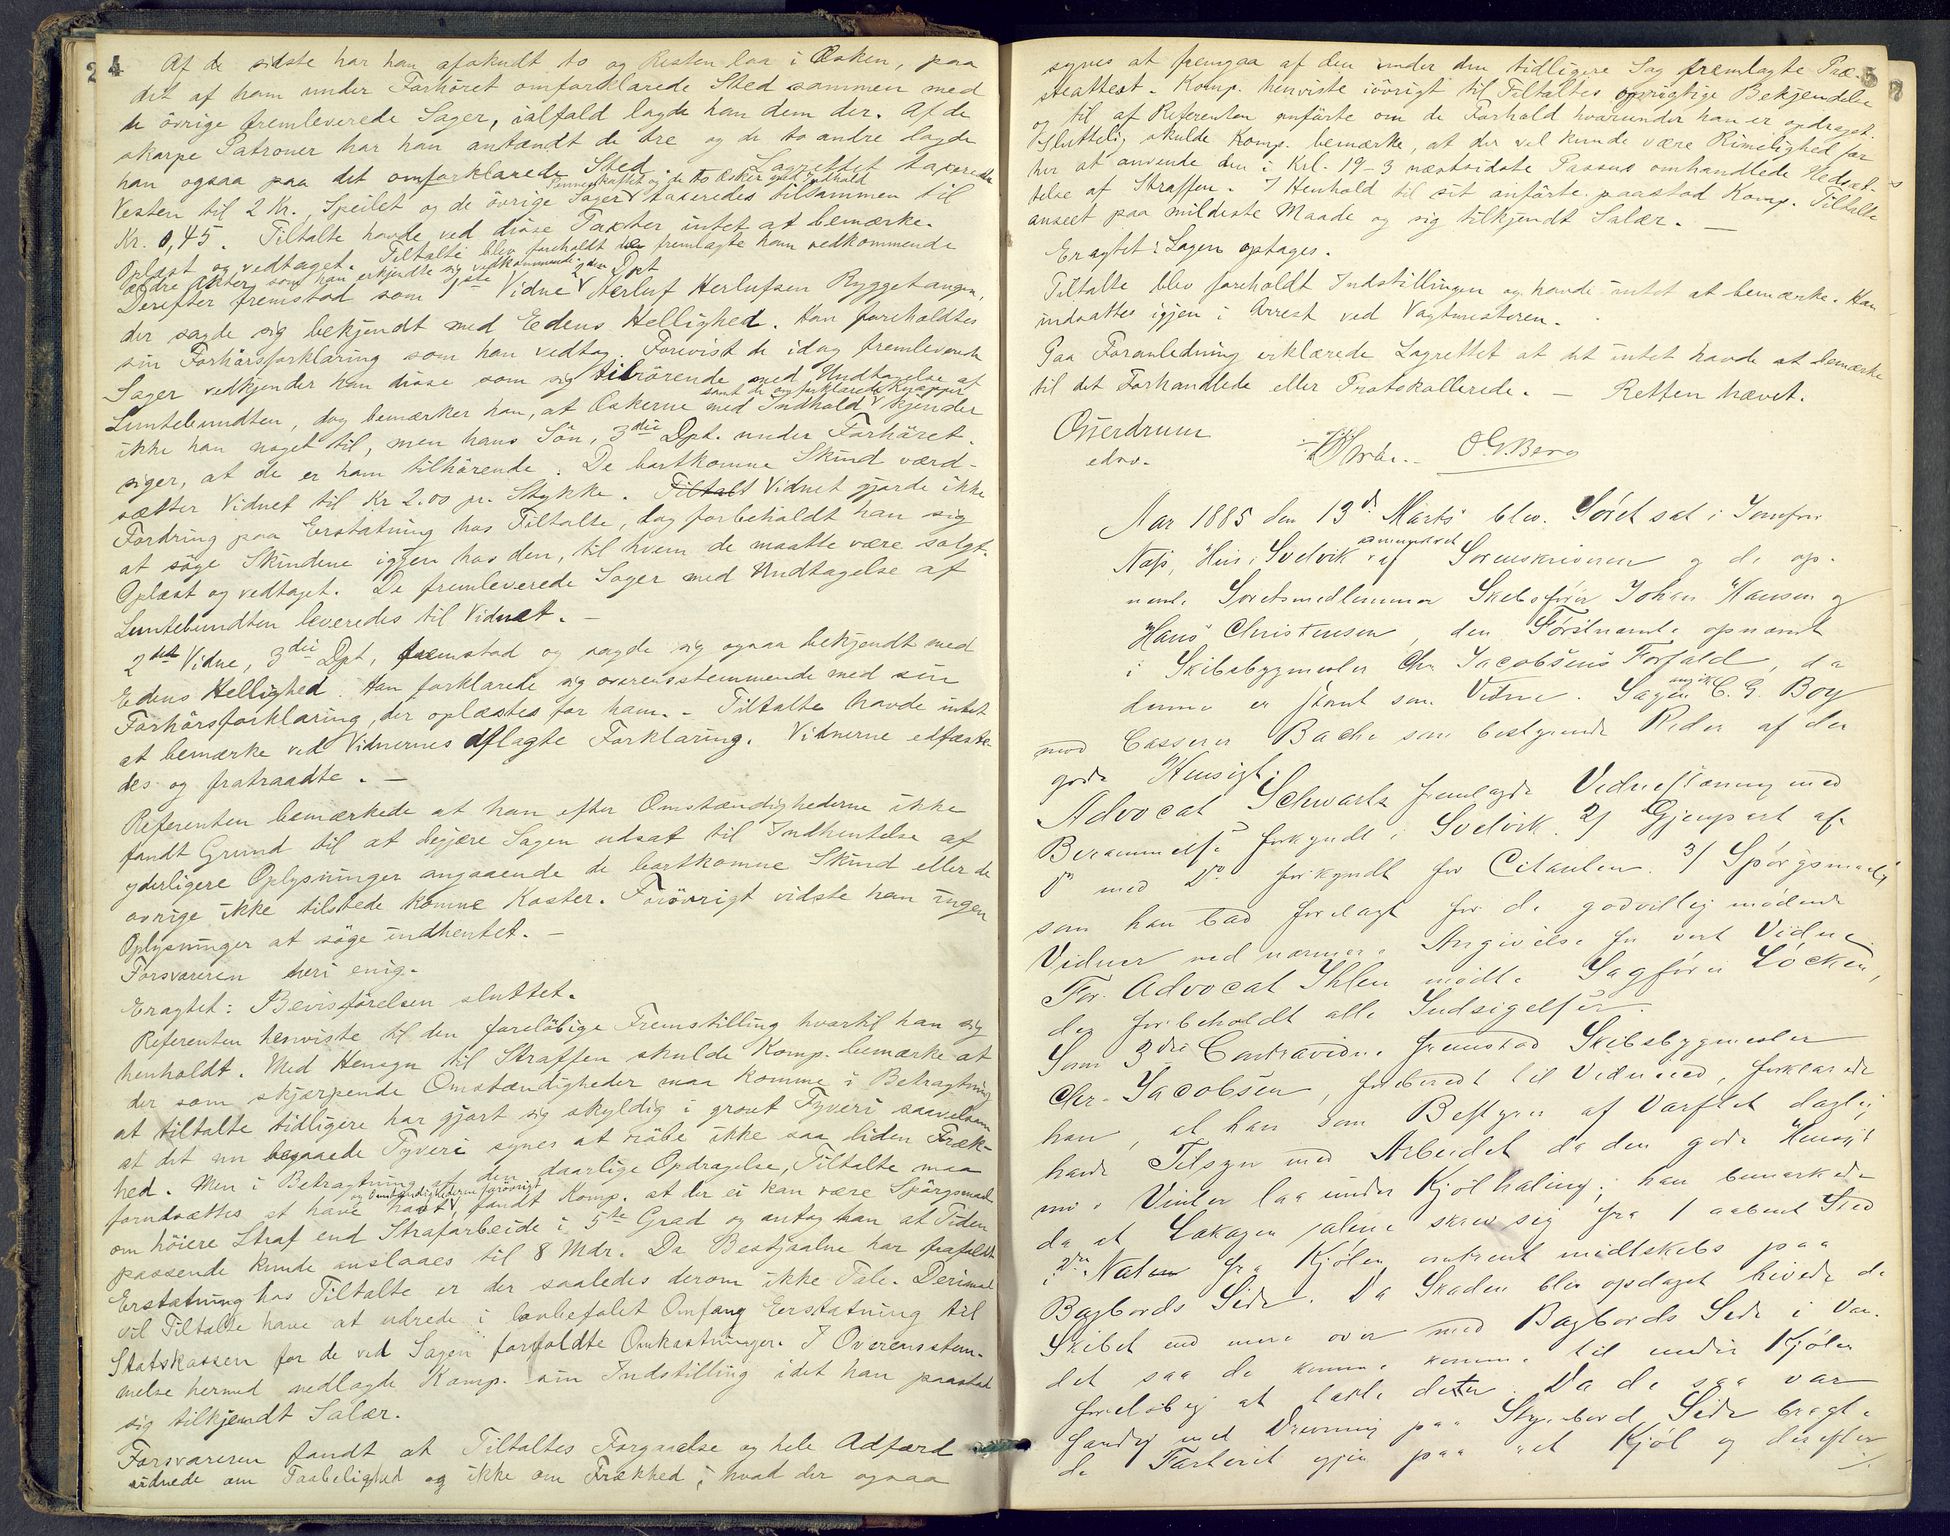 4
Af de sidste har han afskudt to og Resten laa i Æsken, paa
det af ham under Forhöret omforklarede Sted sammen med
de övrige fremleverede Sager, ialfald lagde han dem der. Af de
skarpe Patroner har han antændt de tre og de to andre lagde
han ogsaa paa det omforklarede Sted. Lagrettet taxerede
Vesten til 2 Kr., Speilet og de övrige Sager taxeredes tilsammen til
Kr. 0,45. Tiltalte havde ved disse Taxter intet at bemærke.
Oplæst og vedtaget. Tiltalte blev foreholdt de fremlagte ham vedkommende
ældre Akter som han erkjendte sig vedkommende.
Derefter fremstod som 1ste Vidne, 2den Dpt Herluf Herlufsen Ryggetangen,
der sagde sig bekjendt med Edens Hellighed. Han foreholdtes
sin Forhörsforklaring som han vedtog. Forevist de idag fremleverede
Sager vedkjender han disse som sig tilhörende med Undtagelse af
Luntebundten, dog bemærker han, at Æskerne med Indhold samt de omforklarede Knapper kjender
ikke han noget til, men hans Sön, 3die Dpt. under Forhöret,
siger, at de er ham tilhörende. De bortkomne Skind værd-
sætter Vidnet til Kr 2.00 pr. Stykke. Tiltalt Vidnet gjorde ikke
Fordring paa Erstatning hos Tiltalte, dog forbeholdt han sig
at söge Skindene igjen hos den, til hvem de maatte være solgt.
Oplæst og vedtaget. De fremleverede Sager med Undtagelse af
Luntebundten leveredes til Vidnet. –
2det Vidne, 3die Dpt, fremstod og sagde sig ogsaa bekjendt med
Edens Hellighed. Han forklarede sig overensstemmende med sin
Forhörsforklaring, der oplæstes for ham. – Tiltalte havde intet
at bemærke ved Vidnernes aflagte Forklaring. Vidnerne edfæste-
des og fratraadte. –
Referenten bemærkede at han efter Omstændighederne ikke
fandt Grund til at begjære Sagen udsat til Indhentelse af
yderligere Oplysninger angaaende de bortkomne Skind eller de
övrige ikke tilstede komne Koster. Forövrigt vidste han ingen
Oplysninger at söge indhentet. –
Forsvareren heri enig.
Eragtet: Bevisförelsen sluttet.
Referenten henviste til den foreløbige Fremstilling hvortil han sig
henholdt. Med Hensyn til Straffen skulde Komp. bemærke at
der som skjærpende Omstændigheder maa komme i Betragtning
at tiltalte tidligere har gjort sig skyldig i grovt Tyveri saavelsom
at det nu begaaede Tyveri synes at röbe ikke saa liden Fræk-
hed. Men i Betragtning af den daarlige Opdragelse, Tiltalte maa
forudsættes at have havt og Omstændighederne forövrigt, fandt Komp. at der ei kan være Spörgsmaal
om höiere Straf end Strafarbeide i 5te Grad og antog han at Tiden
passende kunde anslaaes til 8 Mdr. Da Bestjaalne har frafaldt
Erstatning hos Tiltalte er der saaledes derom ikke Tale. Derimod
vil Tiltalte have at udrede i lovbefalet Omfang Erstatning til
Statskassen for de ved Sagen forvoldte Omkostninger. I Overensstem-
melse hermed nedlagde Komp. sin Indstilling idet han paastod
sig tilkjendt Salær.
Forsvareren fandt at Tiltaltes Forgaaelse og hele Adfærd
vidnede om Taabelighed og ikke om Frækhed, hvad der ogsaa
5
synes at fremgaa af den under den tidligere Sag fremlagte Præ-
steattest. Komp. henviste iövrigt til Tiltaltes oprigtige Bekjendelse
og til af Referenten anförte om de Forhold hvorunder han er opdraget.
Sluttelig skulde Komp. bemærke, at der vel kunde være Rimelighed for
her at anvende den i Krl. 19–3 næstsidste Passus omhandlede Nedsæt-
telse af Straffen. I Henhold til sit anförte paastod Komp. Tiltalte
anseet paa mildeste Maade og sig tilkjendt Salær. –
Eragtet: Sagen optages.
Tiltalte blev foreholdt Indstillingen og havde intet at bemærke. Han
indsattes igjen i Arrest ved Vagtmesteren.
Paa Foranledning erklærede Lagrettet at det intet havde at bemærke
til det Forhandlede eller Protokollerede. – Retten hævet.
Otterdrum
edsv.
O. G. Berg
Aar 1885 den 13de Marts blev Søret sat i Jomfru
Næss Hus i Svelvik administreret af Sorenskriveren og de op-
nævnte Søretsmedlemmer Skibsfører Johan Hansen og
Hans Christensen, den Førstnævnte opnævnt
i Skibsbygmester Chr Jacobsens Forfald, da
denne er stævnt som Vidne. Sagen angik C. G. Boy
mod Casserer Bache som bestyrende Reder af den
gode Hensigt.
Advocat Schwartz fremlagde Vidnestævning med
Berammelse forkyndt i Svelvik. 2/ Gjenpart af
Do med Do forkyndt for Citanten. 3/ Spørgsmaal,
som han bad forelagt for de godvillig mødende
Vidner ved nærmere Angivelse for hvert Vidne.
For Advocat Ihlen mødte Sagfører Løcken,
der forbeholdt alle Indsigelser.
Som 3die Contravidne fremstod Skibsbygmester
Chr. Jacobsen, forberedt til Vidneed, forklarede
han, at han som Bestyrer af Værftet daglig
havde Tilsyn med Arbeidet da den gode Hensigt
nu i Vinter laa under Kjølhaling; han bemærkede
da at Lækagen alene skrev sig fra 1 aabent Sted
i 2den Naten fra Kjølen omtrent midtskibs paa
Bagbords Side. Da Skaden blev opdaget hivede de
Skibet end mere over med Bagbords Side i Van-
det saa de kunne komme til under Kjølen
foreløbig at tætte dette. Da de saa var
færdig med Drevning paa Styrbord Side bragte
de Fartøiet igjen paa ret Kjøl og derefter